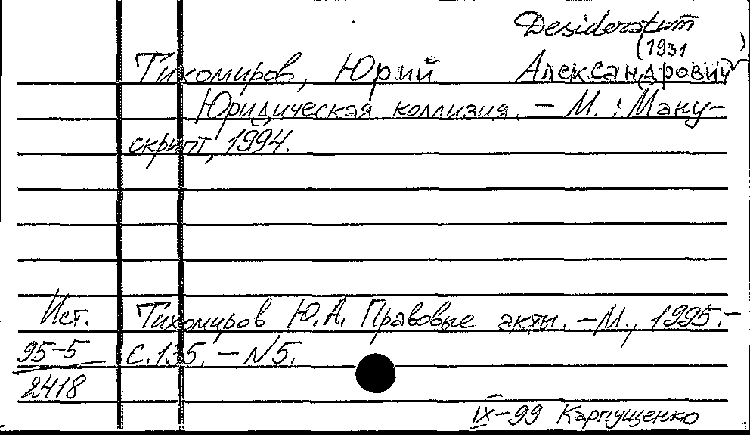 Desideratum
(1931 )
Тихомиров, Юрий Александрович
Юридическая коллизия. – М. : Ману-
скрипт, 1994.
Ист. Тихомиров Ю.А. Правовые акты. – М., 1995. –
95-5 С. 135. – N5.
2418
IX-99 Карпущенко